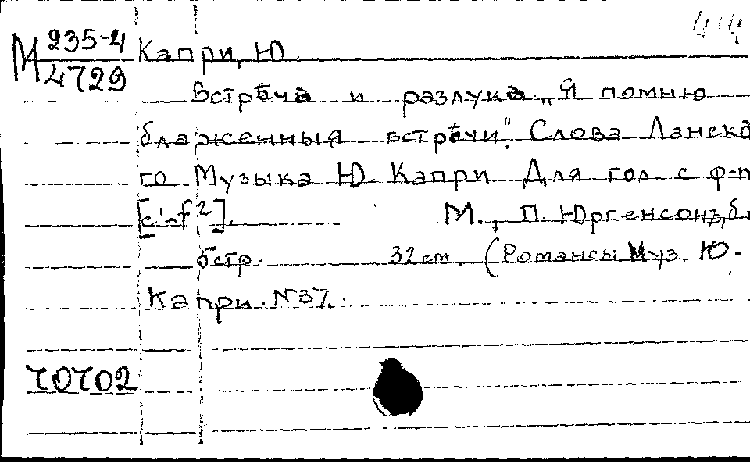 М 235-4
4729
Капри, Ю.
Встрѣча и разлука „Я помню
блаженныя встрѣчи". Слова Ланско
го Музыка Ю Капри Для гол. с ф-п
[c'-f²]. М., П. Юргенсонъ, б.
6стр. 32cm. (Романсы Муз. Ю.
Капри. N37.
70702